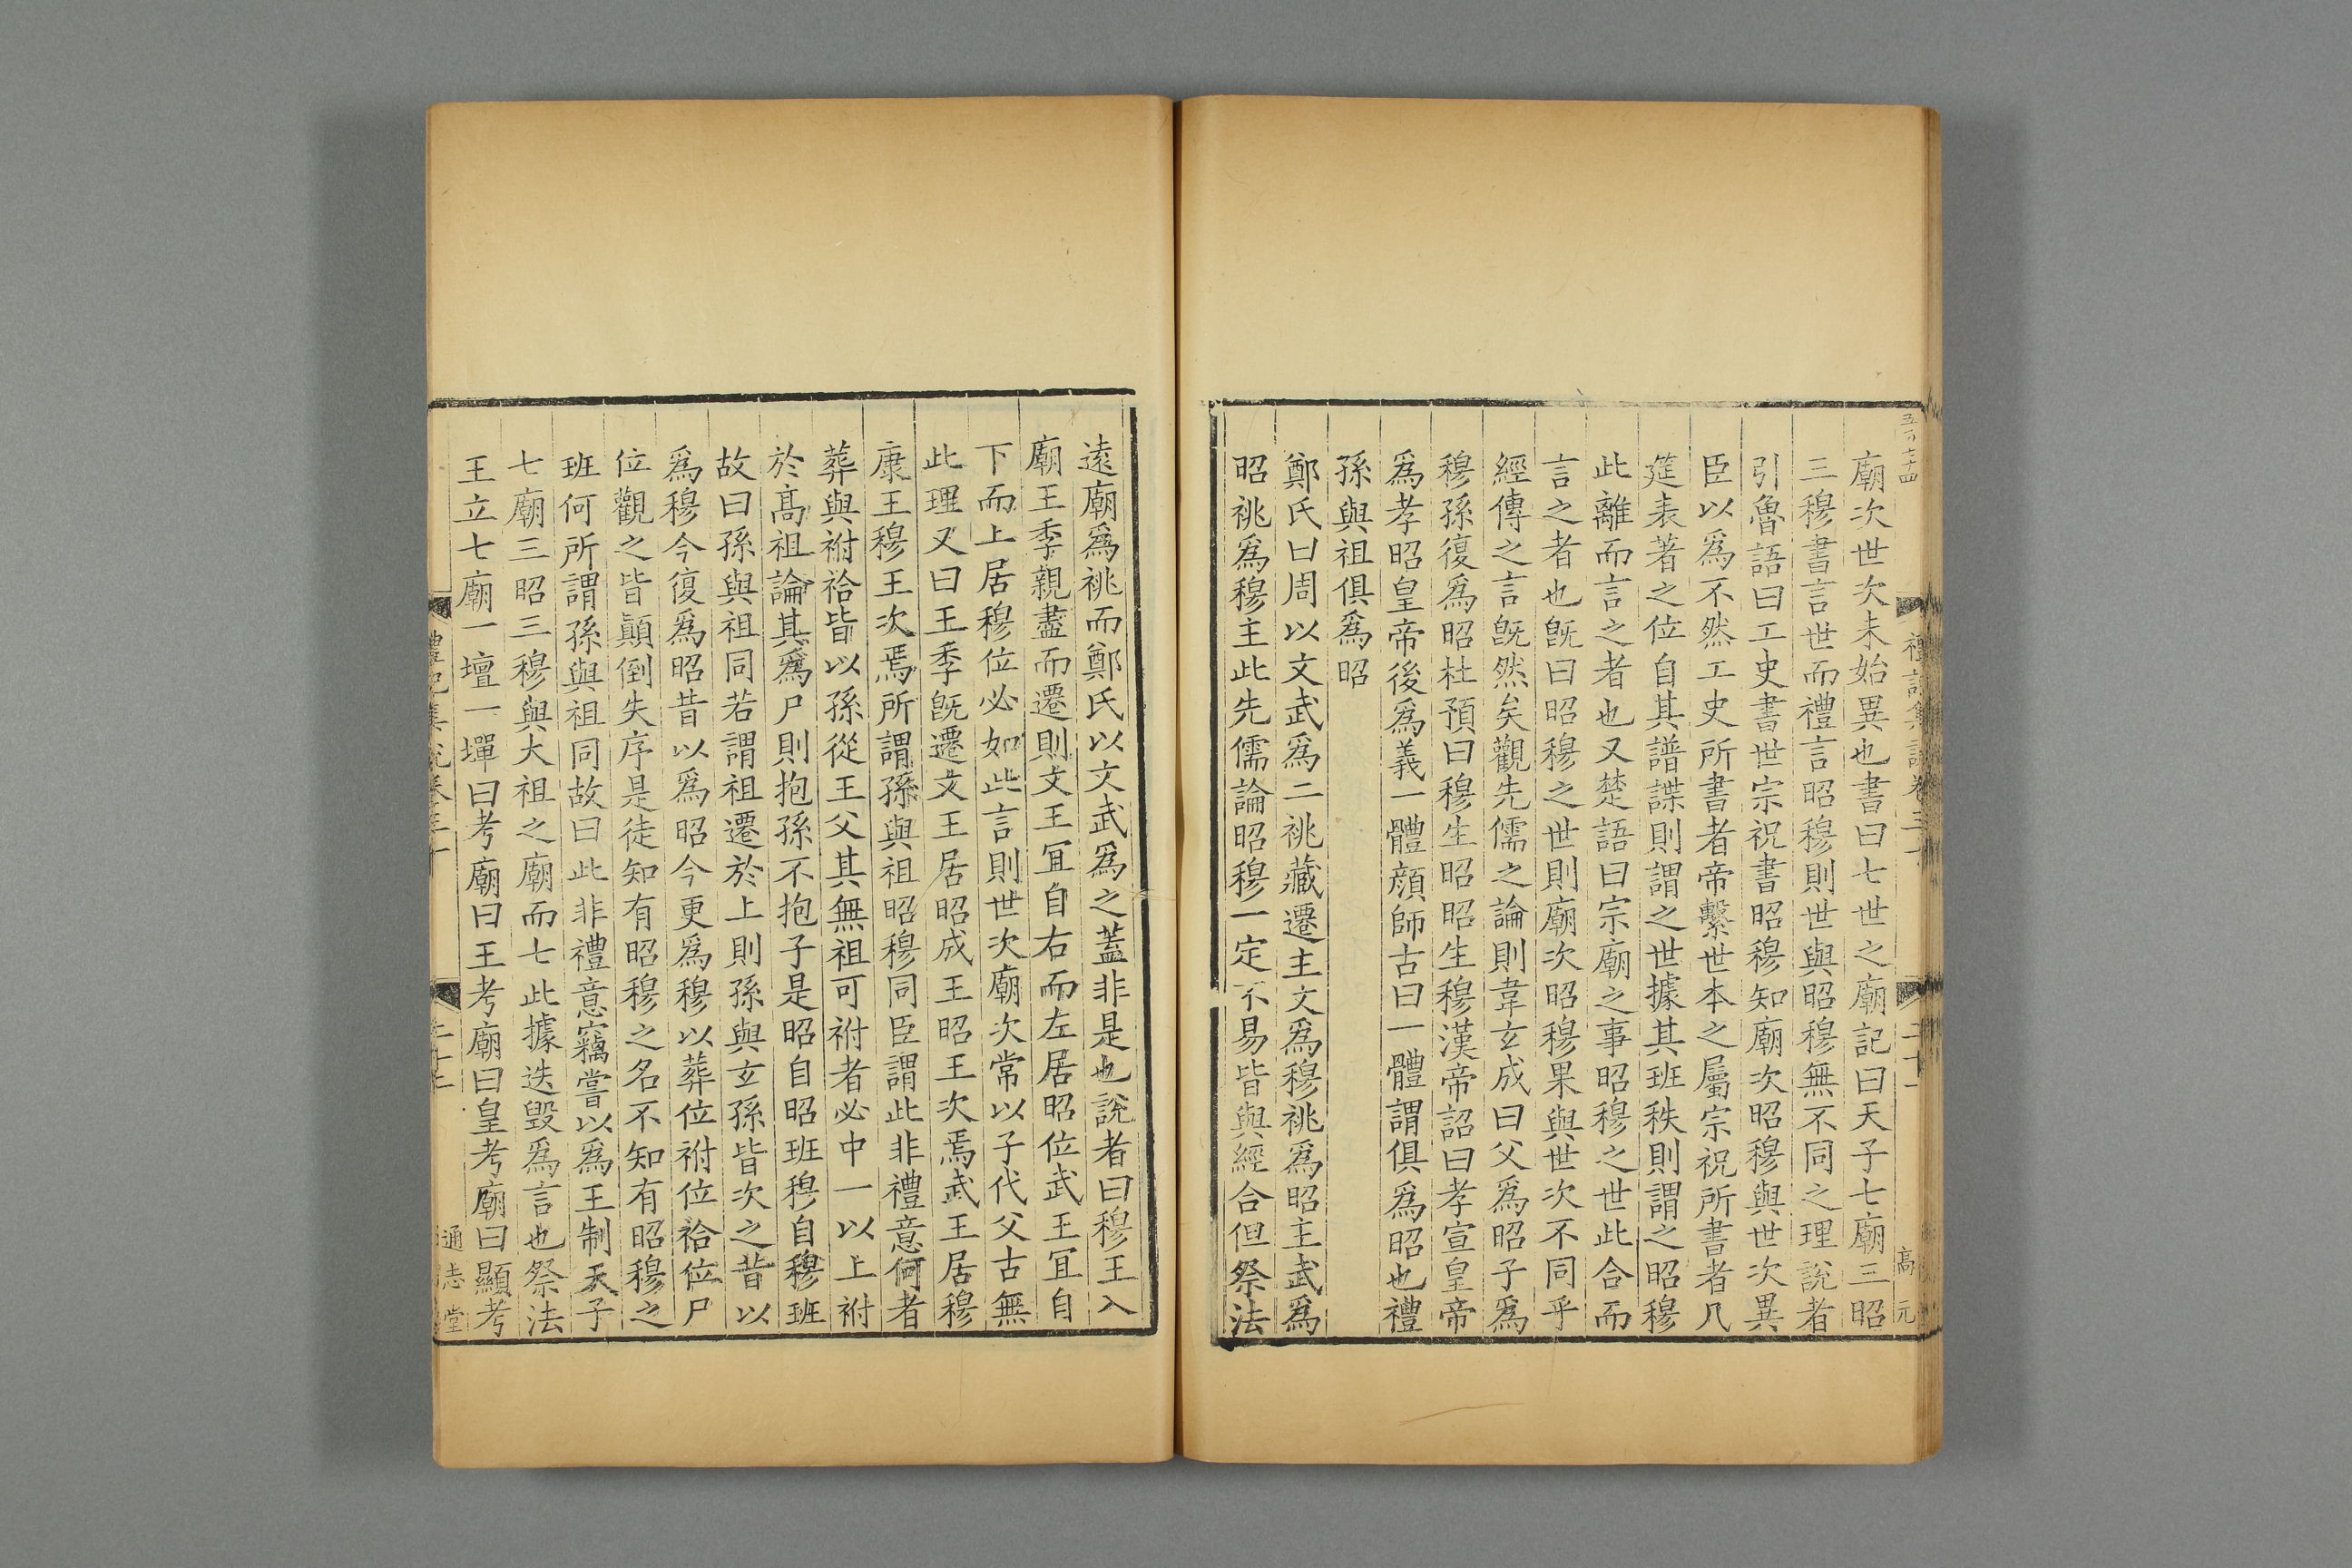 廟次世次未始異也書曰七世之廟記曰天子七廟三昭
三穆書言世而禮言昭穆則世與昭穆無不同之理說者
引魯語曰工史書世宗祝書昭穆知廟次昭穆與世次異
臣以爲不然工史所書者帝繫世本之屬宗祝所書者凡
筵表著之位自其譜諜則謂之世據其班秩則謂之昭穆
此離而言之者也又楚語曰宗廟之事昭穆之世此合而
言之者也旣曰昭穆之世則廟次昭穆果與世次不同乎
經傳之言旣然矣觀先儒之論則韋玄成曰父爲昭子爲
穆孫復爲昭杜預曰穆生昭昭生穆漢帝詔曰孝宣皇帝
爲孝昭皇帝後爲義一體顏師古曰一體謂俱爲昭也禮
孫與祖俱爲昭
鄭氏曰周以文武爲二祧藏遷主文爲穆祧爲昭主武爲
昭祧爲穆主此先儒論昭穆一定不易皆與經合但祭法
高元
遠廟爲祧而鄭氏以文武爲之蓋非是也說者曰穆王入
廟王季親盡而遷則文王宜自右而左居昭位武王宜自
下而上居穆位必如此言則世次廟次常以子代父古無
此理又曰王季旣遷文王居昭成王昭王次焉武王居穆
康王穆王次焉所謂孫與祖昭穆同臣謂此非禮意何者
葬與祔祫皆以孫從王父其無祖可祔者必中一以上祔
於高祖論其爲尸則抱孫不抱子是昭自昭班穆自穆班
故曰孫與祖同若謂祖遷於上則孫與玄孫皆次之昔以
爲穆今復爲昭昔以爲昭今更爲穆以葬位祔位祫位尸
位觀之皆顚倒失序是徒知有昭穆之名不知有昭穆之
班何所謂孫與祖同故曰此非禮意竊嘗以爲王制天子
七廟三昭三穆與大祖之廟而七此據迭毀爲言也祭法
王立七廟一壇一墠曰考廟曰王考廟曰皇考廟曰顯考
通志堂